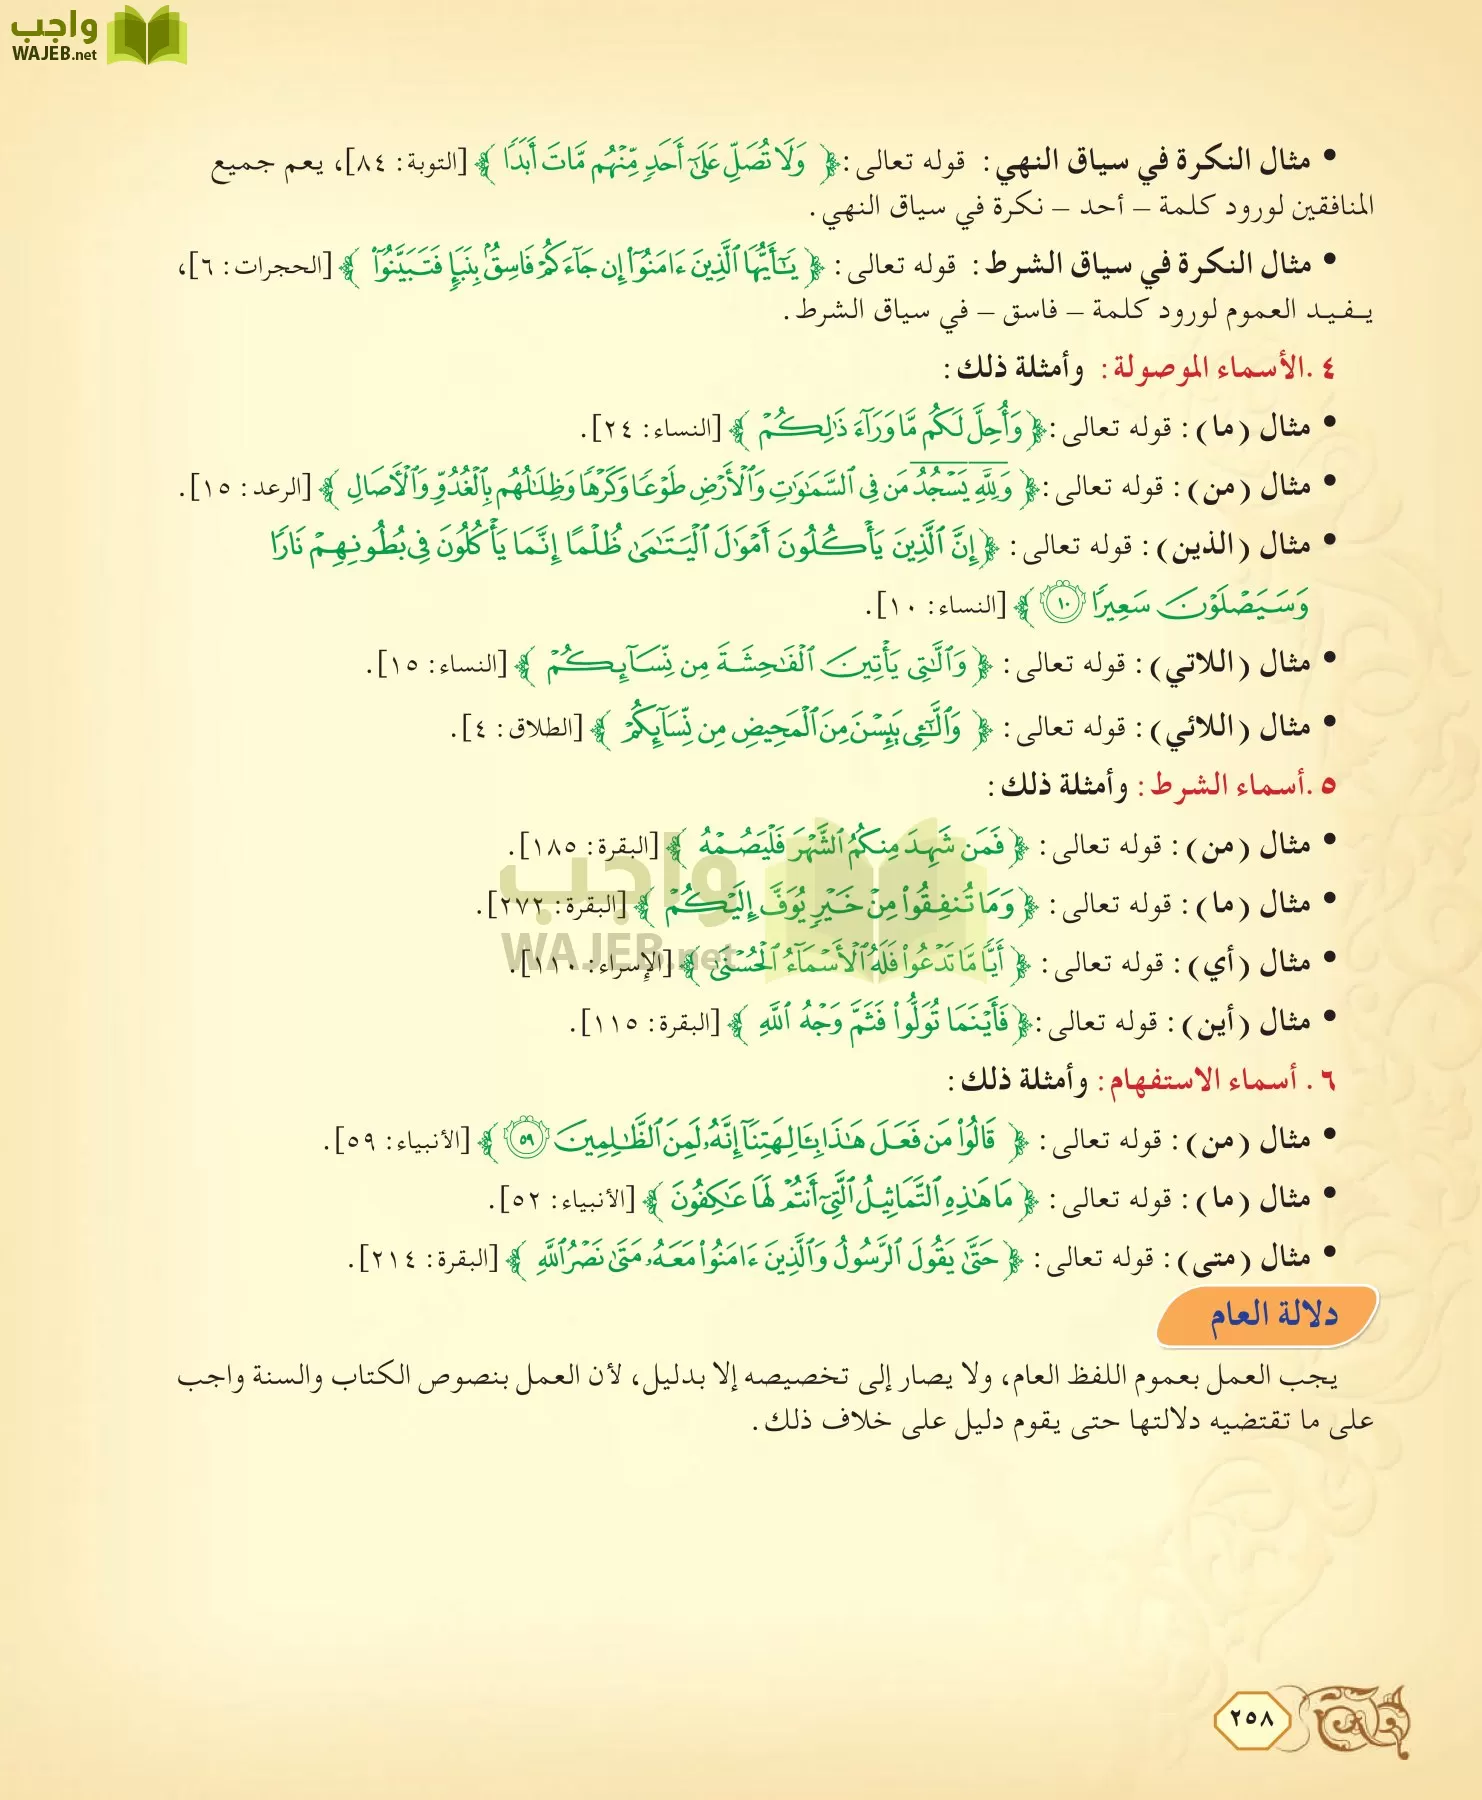 واجب
WAJEB.net
• مثال النكرة في سياق النهي: قوله تعالى: ﴿ وَلَا تُصَلِّ عَلَىٰٓ أَحَدٖ مِّنۡهُم مَّاتَ أَبَدٗا ﴾ [التوبة: ٨٤]، يعم جميع
المنافقين لورود كلمة – أحد – نكرة في سياق النهي.
• مثال النكرة في سياق الشرط: قوله تعالى: ﴿ يَٰٓأَيُّهَا ٱلَّذِينَ ءَامَنُوٓاْ إِن جَآءَكُمۡ فَاسِقُۢ بِنَبَإٖ فَتَبَيَّنُوٓاْ ﴾ [الحجرات: ٦]،
يـفـيـد العموم لورود كلمة – فاسق – في سياق الشرط.
٤ .الأسماء الموصولة: وأمثلة ذلك:
• مثال (ما): قوله تعالى: ﴿ وَأُحِلَّ لَكُم مَّا وَرَآءَ ذَٰلِكُمۡ ﴾ [النساء: ٢٤].
• مثال (من): قوله تعالى: ﴿ وَلِلَّهِۤ يَسۡجُدُۤ مَن فِي ٱلسَّمَٰوَٰتِ وَٱلۡأَرۡضِ طَوۡعٗا وَكَرۡهٗا وَظِلَٰلُهُم بِٱلۡغُدُوِّ وَٱلۡأٓصَالِ ﴾ [الرعد: ١٥].
• مثال (الذين): قوله تعالى: ﴿ إِنَّ ٱلَّذِينَ يَأۡكُلُونَ أَمۡوَٰلَ ٱلۡيَتَٰمَىٰ ظُلۡمًا إِنَّمَا يَأۡكُلُونَ فِي بُطُونِهِمۡ نَارٗا
وَسَيَصۡلَوۡنَ سَعِيرٗا ١٠ ﴾ [النساء: ١٠].
• مثال (اللاتي): قوله تعالى: ﴿ وَٱلَّٰتِي يَأۡتِينَ ٱلۡفَٰحِشَةَ مِن نِّسَآئِكُمۡ ﴾ [النساء: ١٥].
• مثال (اللائي): قوله تعالى: ﴿ وَٱلَّٰٓـِٔي يَئِسۡنَ مِنَ ٱلۡمَحِيضِ مِن نِّسَآئِكُمۡ ﴾ [الطلاق: ٤].
٥ .أسماء الشرط: وأمثلة ذلك:
• مثال (من): قوله تعالى: ﴿ فَمَن شَهِدَ مِنكُمُ ٱلشَّهۡرَ فَلۡيَصُمۡهُ ﴾ [البقرة: ١٨٥].
• مثال (ما): قوله تعالى: ﴿ وَمَا تُنفِقُواْ مِنۡ خَيۡرٖ يُوَفَّ إِلَيۡكُمۡ ﴾ [البقرة: ٢٧٢].
• مثال (أي): قوله تعالى: ﴿ أَيّٗا مَّا تَدۡعُواْ فَلَهُ ٱلۡأَسۡمَآءُ ٱلۡحُسۡنَىٰ ﴾ [الإسراء: ١١٠].
• مثال (أين): قوله تعالى: ﴿ فَأَيۡنَمَا تُوَلُّواْ فَثَمَّ وَجۡهُ ٱللَّهِ ﴾ [البقرة: ١١٥].
٦ . أسماء الاستفهام: وأمثلة ذلك:
• مثال (من): قوله تعالى: ﴿ قَالُواْ مَن فَعَلَ هَٰذَا بِـَٔالِهَتِنَآ إِنَّهُۥ لَمِنَ ٱلظَّٰلِمِينَ ٥٩ ﴾ [الأنبياء: ٥٩].
• مثال (ما): قوله تعالى: ﴿ مَا هَٰذِهِ ٱلتَّمَاثِيلُ ٱلَّتِيٓ أَنتُمۡ لَهَا عَٰكِفُونَ ﴾ [الأنبياء: ٥٢].
• مثال (متى): قوله تعالى: ﴿ حَتَّىٰ يَقُولَ ٱلرَّسُولُ وَٱلَّذِينَ ءَامَنُواْ مَعَهُۥ مَتَىٰ نَصۡرُ ٱللَّهِ ﴾ [البقرة: ٢١٤].
دلالة العام
يجب العمل بعموم اللفظ العام، ولا يصار إلى تخصيصه إلا بدليل، لأن العمل بنصوص الكتاب والسنة واجب
على ما تقتضيه دلالتها حتى يقوم دليل على خلاف ذلك.
واجب
WAJEB.net
٢٥٨